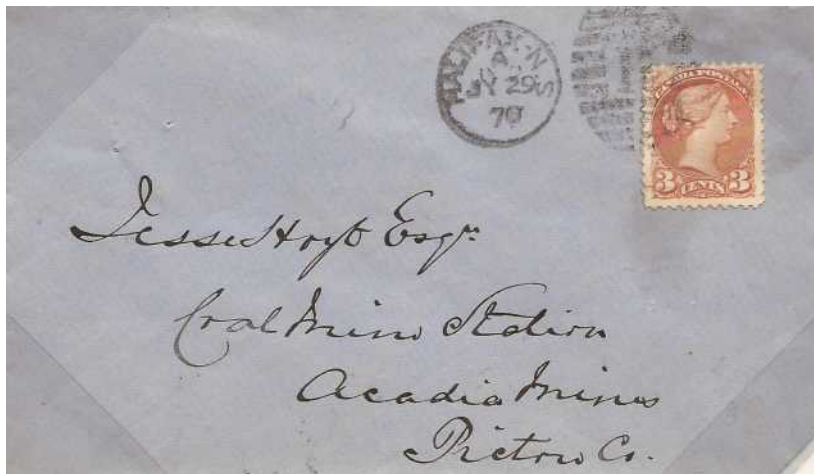 HALIFAX·N·S
A
JY 29
70
CANADA POSTAGE
3 CENTS 3
Jesse Hoyt Esqr.
Coal Mine Station
Acadia Mines
Pictou Co.